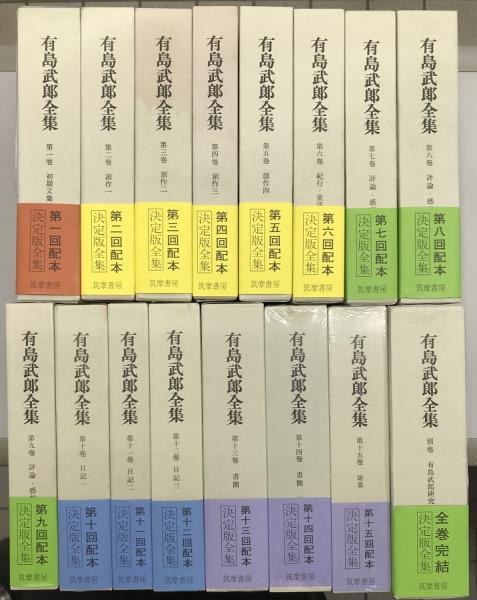 有島武郎全集
第一巻 初期文集
第一回配本
決定版全集
筑摩書房
有島武郎全集
第二巻 創作一
第二回配本
決定版全集
筑摩書房
有島武郎全集
第三巻 創作二
第三回配本
決定版全集
筑摩書房
有島武郎全集
第四巻 創作三
第四回配本
決定版全集
筑摩書房
有島武郎全集
第五巻 創作四
第五回配本
決定版全集
筑摩書房
有島武郎全集
第六巻 紀行・童話
第六回配本
決定版全集
筑摩書房
有島武郎全集
第七巻 評論・感
第七回配本
決定版全集
筑摩書房
有島武郎全集
第八巻 評論・感
第八回配本
決定版全集
筑摩書房
有島武郎全集
第九巻 評論・感想
第九回配本
決定版全集
筑摩書房
有島武郎全集
第十巻 日記一
第十回配本
決定版全集
筑摩書房
有島武郎全集
第十一巻 日記二
第十一回配本
決定版全集
筑摩書房
有島武郎全集
第十二巻 日記三
第十二回配本
決定版全集
筑摩書房
有島武郎全集
第十三巻 書簡
第十三回配本
決定版全集
筑摩書房
有島武郎全集
第十四巻 書簡
第十四回配本
決定版全集
筑摩書房
有島武郎全集
第十五巻 雑纂
第十五回配本
決定版全集
筑摩書房
有島武郎全集
別巻 有島武郎研究
全巻完結
決定版全集
筑摩書房